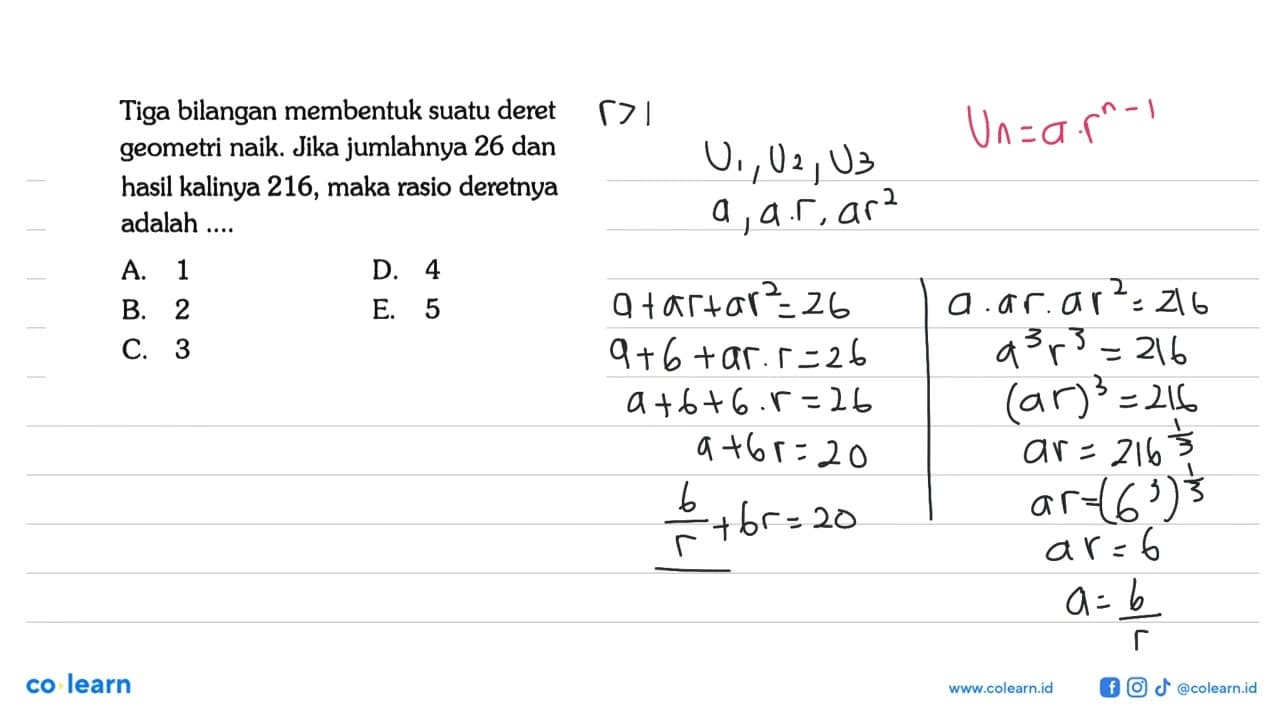 Tiga bilangan membentuk suatu deret
geometri naik. Jika jumlahnya 26 dan
hasil kalinya 216, maka rasio deretnya
adalah ....
A. 1
B. 2
C. 3
D. 4
E. 5
r>1
Un=a.r^n-1
U1, U2, U3
a, a.r, ar²
a+ar+ar²=26
a+6+ar.r=26
a+6+6.r=26
a+6r=20
6/r+6r=20
a.ar.ar²=216
a³r³=216
(ar)³=216
ar=216^1/3
ar=(6³)^1/3
ar=6
a=6/r
co·learn
www.colearn.id
@colearn.id